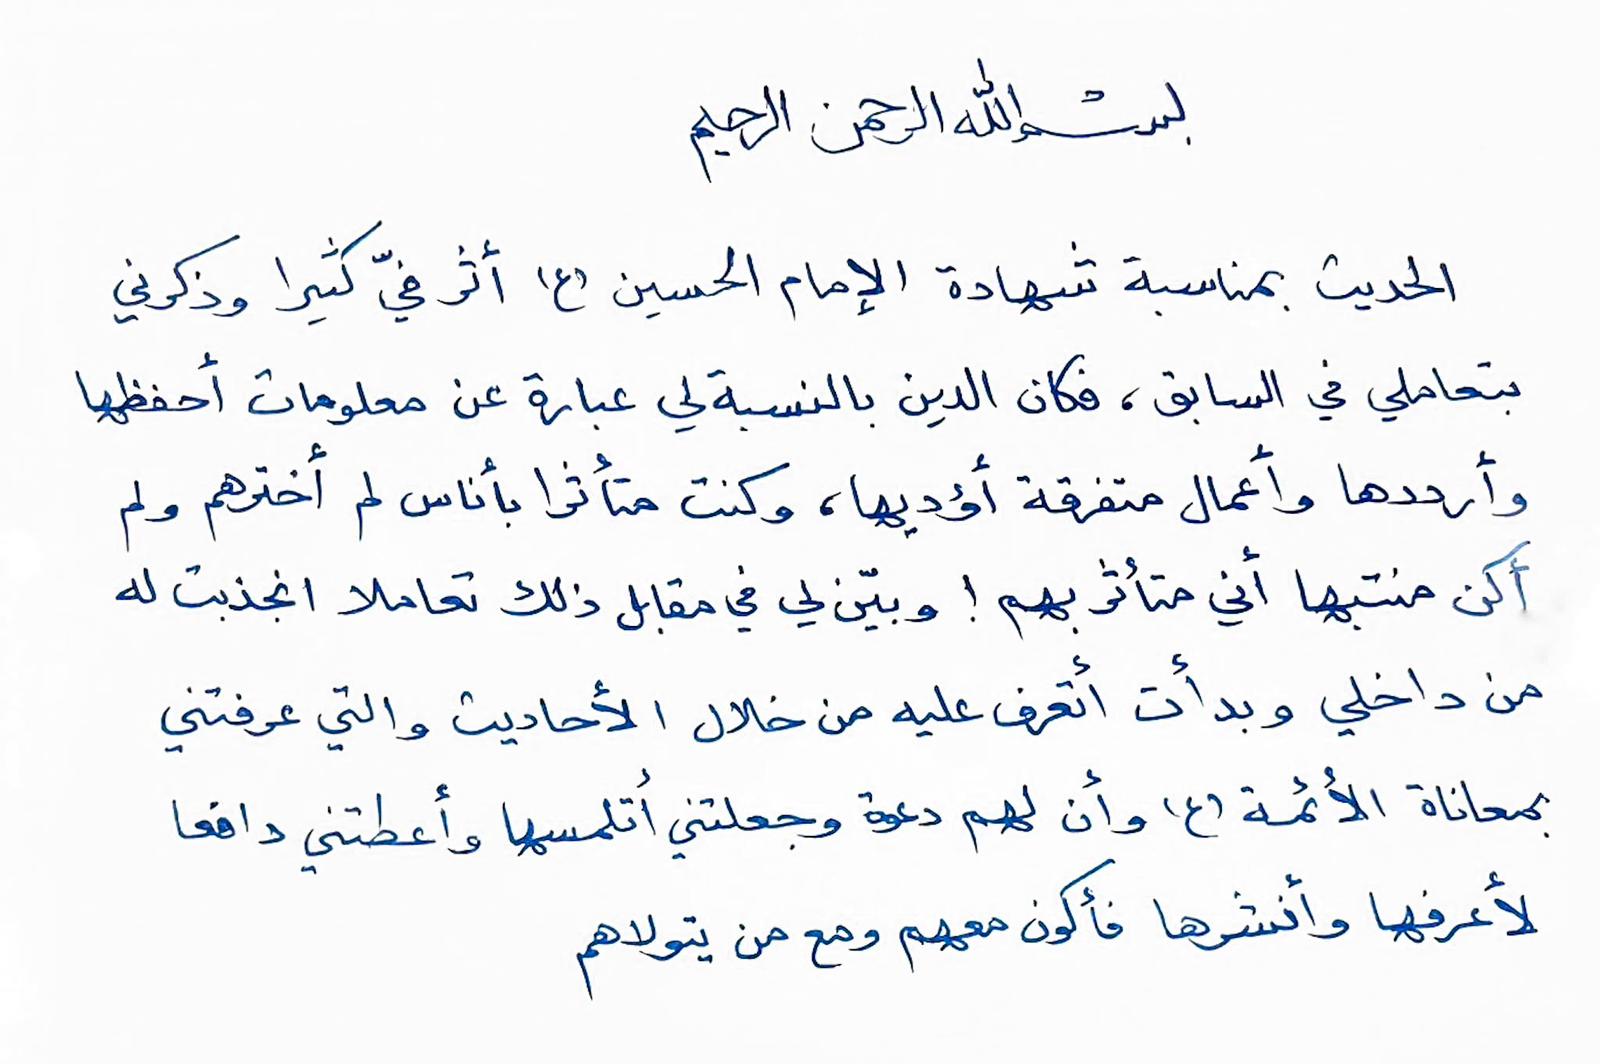 بسم الله الرحمن الرحيم
الحديث بمناسبة شهادة الإمام الحسين (ع) أثر فيّ كثيرا وذكرني
بتعاملي في السابق، فكان الدين بالنسبة لي عبارة عن معلومات أحفظها
وأرددها وأعمال متفرقة أؤديها، وكنت متأثرا بأناس لم أخترهم ولم
أكن منتبها أني متأثر بهم ! وبيّن لي في مقابل ذلك تعاملا انجذبت له
من داخلي وبدأت أتعرف عليه من خلال الأحاديث والتي عرفتني
بمعاناة الأئمة (ع) وأن لهم دعوة وجعلتني أتلمسها وأعطتني دافعا
لأعرفها وأنشرها فأكون معهم ومع من يتولاهم